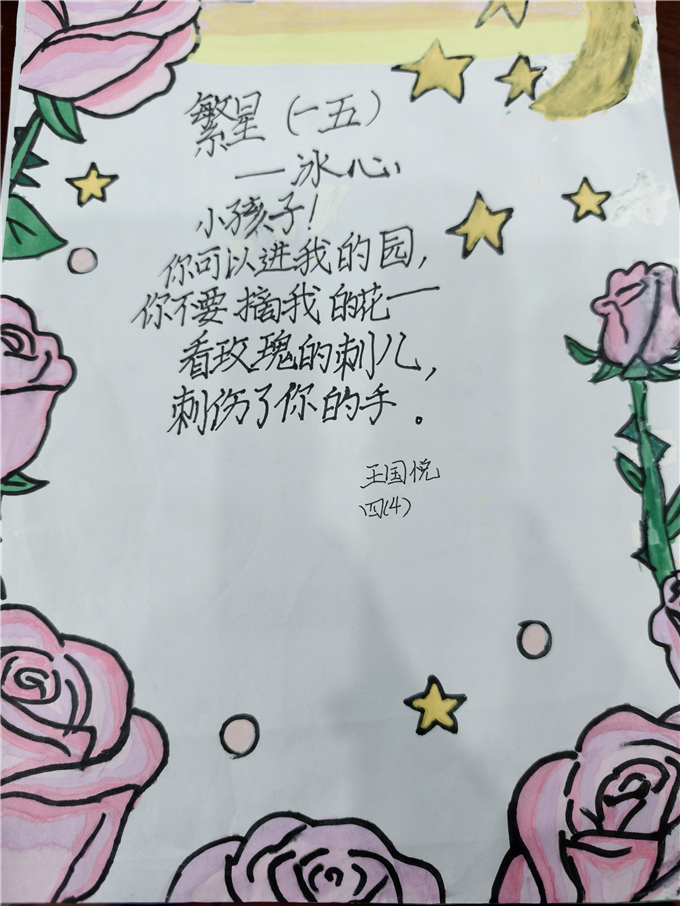 繁星（一五）
—冰心
小孩子！
你可以进我的园，
你不要摘我的花一
看玫瑰的刺儿，
刺伤了你的手。
王国悦
四(4)